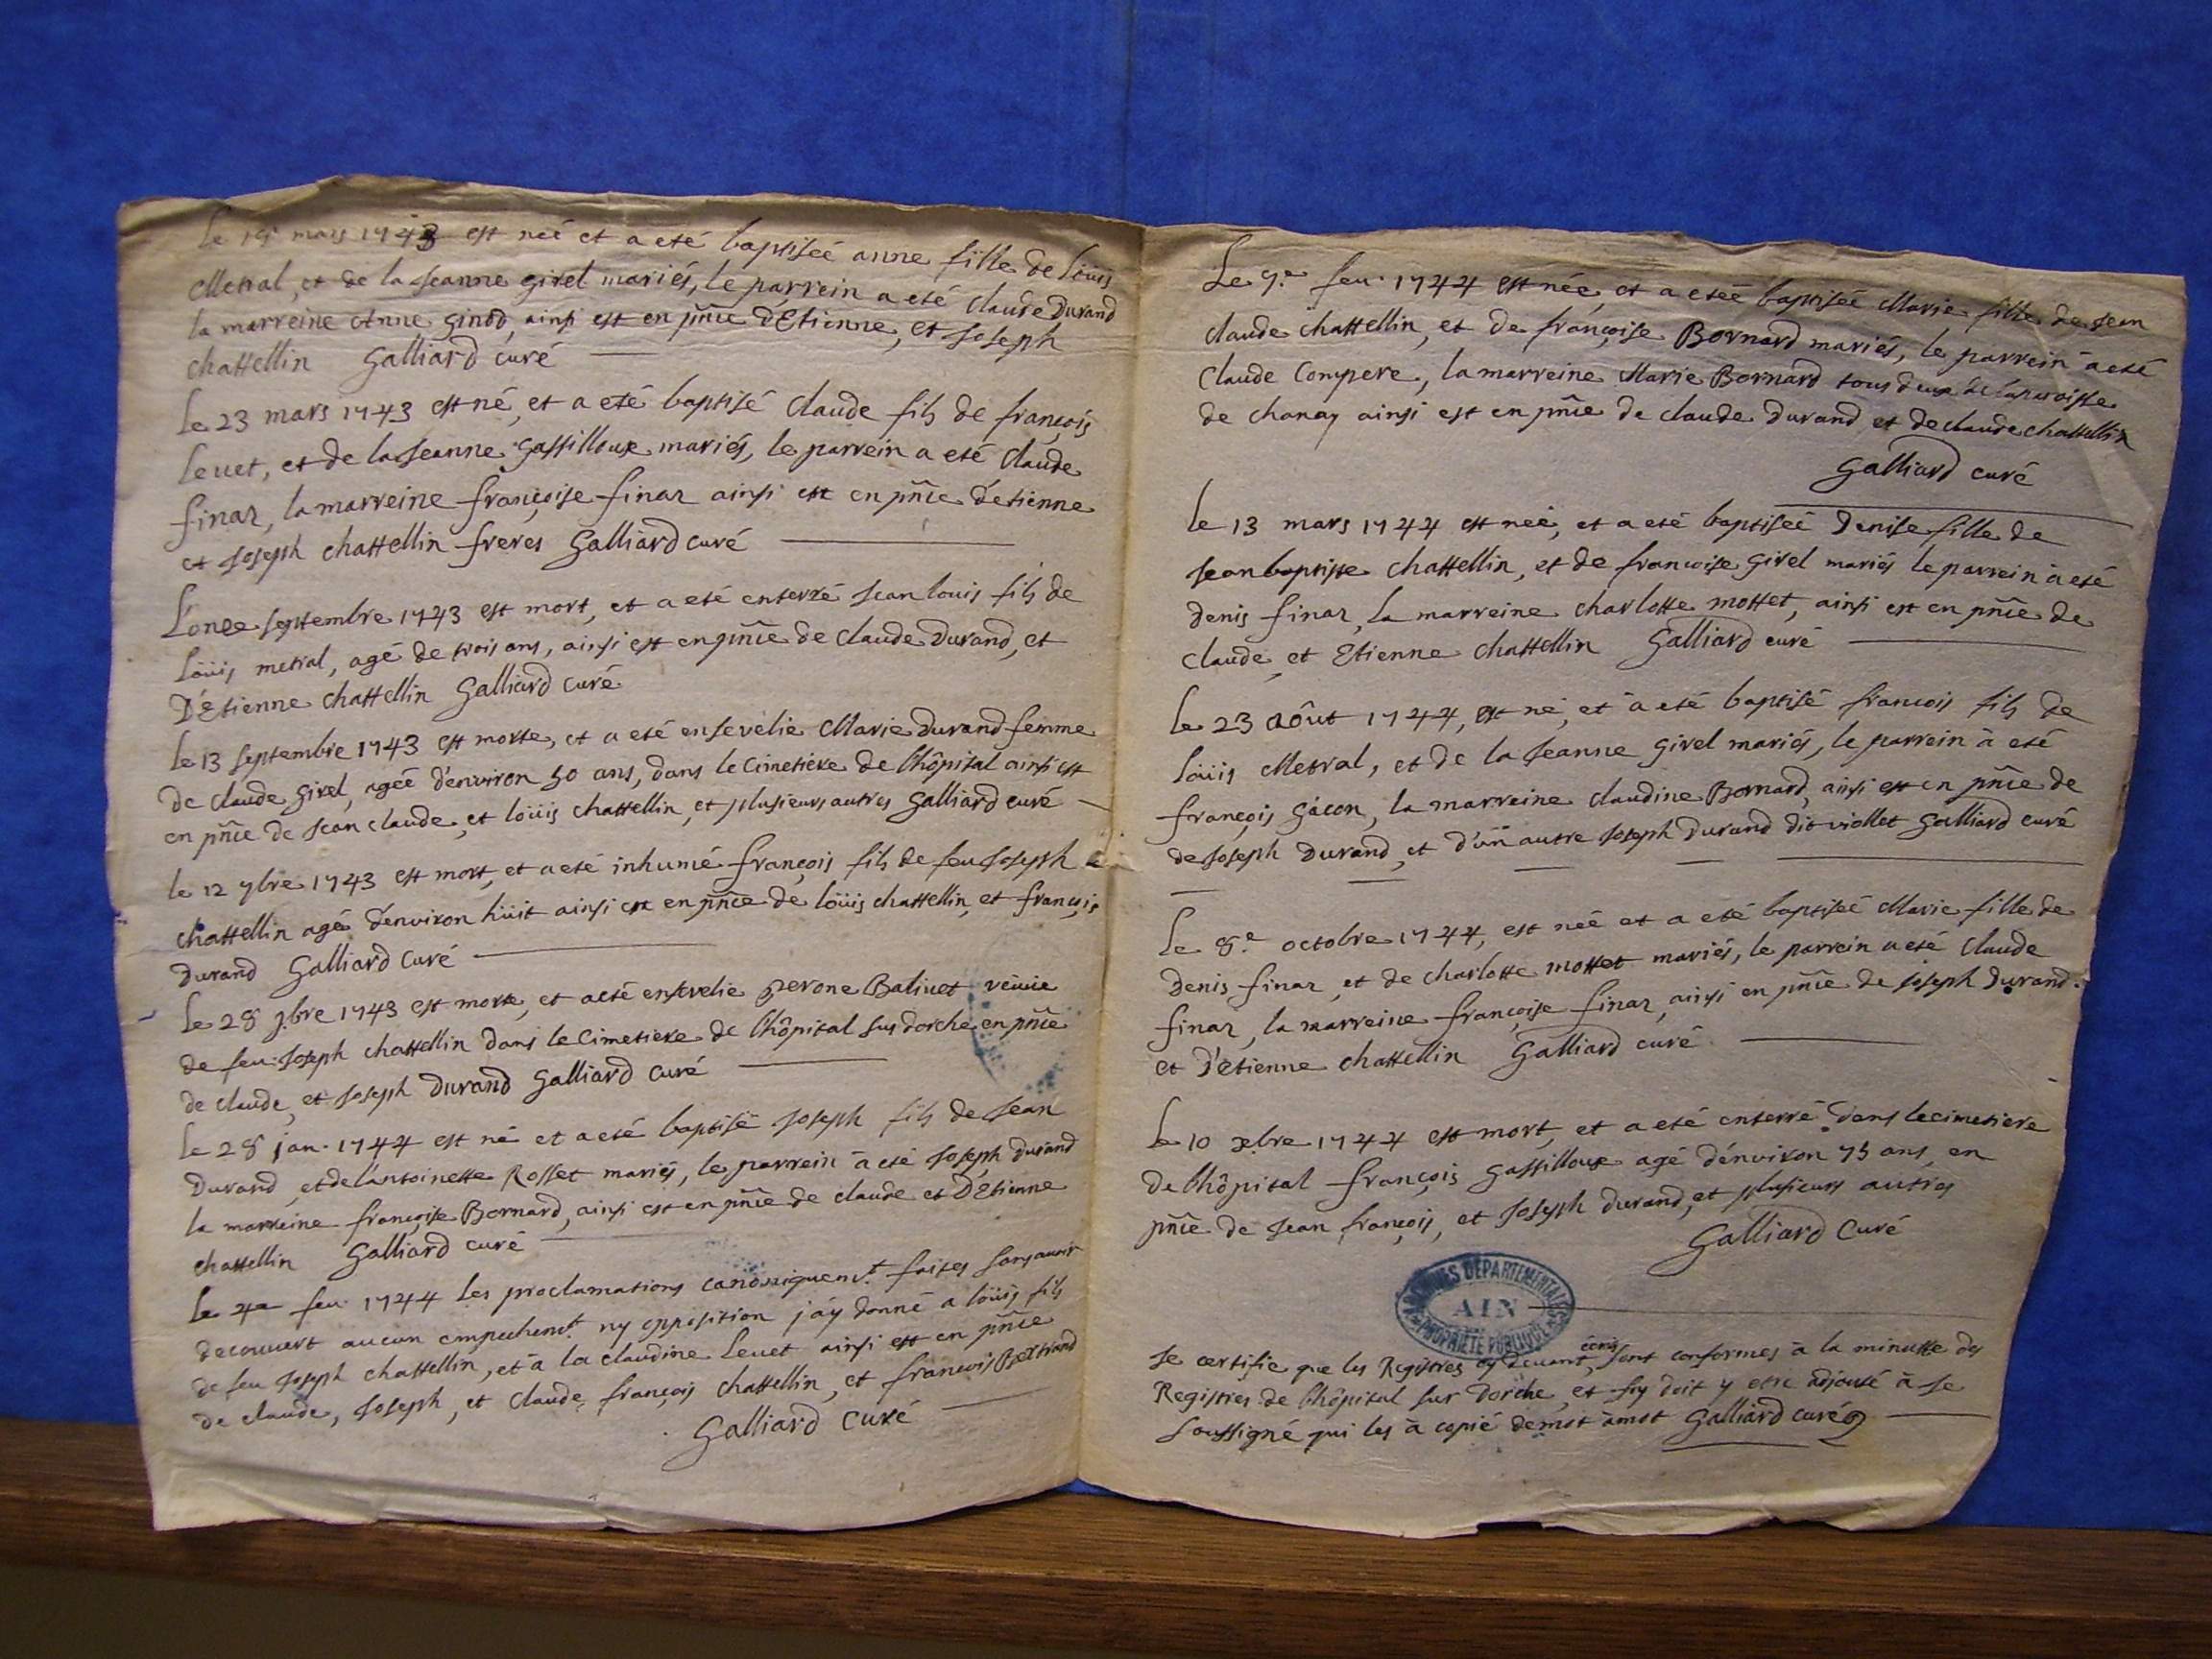 Le 18 mars 1743 est neé et a eté baptiseé anne fille de Loüis
Metral, et de la Jeanne girel mariés, le parrein a eté claude Durand
la marreine Anne ginod, ainsi est en pñce d'Etienne, et Joseph
chattellin Galliard curé
Le 23 mars 1743 est né, et a eté baptisé claude fils de françois
Levet, et de la Jeanne gassilloux mariés, le parrein a eté claude
finaz, la marreine françoise finaz ainsi est en pñce d'etienne
et Joseph chattellin freres Galliard curé
L'onze septembre 1743 est mort, et a eté enterré Jean louis fils de
Loüis metral, agé de trois ans, ainsi est en pñce de claude Durand, et
D'Etienne chattellin Galliard curé
Le 13 septembre 1743 est morte, et a eté ensevelie Marie Durand femme
de claude girel, ageé d'environ 50 ans, dans le cimetiere de l'hôpital ainsi est
en pñce de Jean claude, et loüis chattellin, et plusieurs autres Galliard curé
le 12 9bre 1743 est mort, et a eté inhumé françois fils de feu Joseph
chattellin agé d'environ hüit ainsi est en pñce de loüis chattellin, et françois
Durand Galliard curé
Le 28 9bre 1743 est morte, et a eté ensevelie perone Balivet veuve
de feu Joseph chattellin dans le Cimetiere de l'hôpital sus dorche en pñce
de claude, et Joseph Durand Galliard curé
Le 28 jan. 1744 est né et a eté baptisé Joseph fils de Jean
Durand, et de l'antoinette Rosset mariés, le parrein à eté Joseph Durand
la marreine françoise Bornard, ainsi est en pñce de claude et D'Etienne
chattellin Galliard curé
Le 4e feu. 1744 les proclamations canoniquemt. faites sans avoir
decouvert aucun empechemt. ny opposition j'aÿ donné a loüis fils
de feu Joseph chattellin, et à la claudine Levet ainsi est en pñce
de claude, Joseph, et claude, françois chattellin, et francois Bertrand
Galliard curé
Le 9.e feu. 1744 est née, et a eteé baptiseé Marie fille de Jean
claude chattellin, et de françoise Bornard mariés, le parrein à eté
Claude Compere, la marreine Marie Bornard tous deux de la paroisse
de chanay ainsi est en pñce de claude Durand et de claude chattellin
Galliard curé
le 13 mars 1744 est neé, et a eté baptiseé Denise fille de
Jean baptiste chattellin, et de francoise girel mariés le parrein à eté
denis finaz, la marreine charlotte mottet, ainsi est en pñce de
claude, et Etienne chattellin Galliard curé
Le 23 aôut 1744, est né, et à eté baptisé francois fils de
Loüis Metral, et de la Jeanne girel mariés, le parrein à eté
françois gâcon, la marreine claudine Bornard, ainsi est en pñce de
de Joseph Durand, et d'un autre Joseph Durand dit viollet Galliard curé
Le 8.e octobre 1744, est neé et a eté baptiseé Marie fille de
Denis finaz, et de charlotte mottet mariés, le parrein a eté claude
finaz, la marreine françoise finaz, ainsi en pñce de Joseph Durand.
et D'etienne chattellin Galliard curé
Le 10 xbre 1744 est mort, et a eté enterré dans le cimetiere
de l'hôpital françois gassilloux agé d'environ 75 ans, en
pñce de Jean françois, et Joseph Durand, et plusieurs autres
Galliard Curé
ARCHIVES DÉPARTEMENTALES
AIN
PROPRIÉTÉ PUBLIQUE
Je certifie que les Registres cÿ devant, écris sont conformes à la minutte des
Registres de l'hôpital sur Dorche, et foy doit y etre adjouté à Je
soussigné qui les à copié de mot à mot Galliard curé